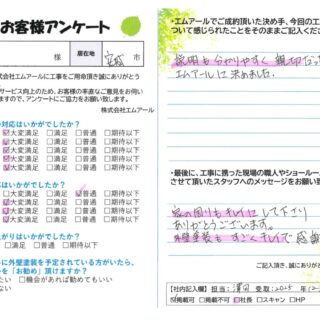 お客様アンケート
様
居在地
市
株式会社エムアールに工事をご用命頂き誠にありがとう
サービス向上のため、お客様の率直なご意見をお伺い
ますので、アンケートにご協力をお願い致します。
株式会社エムアール
対応はいかがでしたか？
大変満足 □満足 □普通 □期待以下
大変満足 □満足 □普通 □期待以下
大変満足 □満足 □普通 □期待以下
大変満足 □満足 □普通 □期待以下
はいかがでしたか？
大変満足 □満足 普通 □期待以下
大変満足 □満足 □普通 □期待以下
大変満足 □満足 □普通 □期待以下
大変満足 □満足 □普通 □期待以下
上がりはいかがでしたか？
□満足 □普通 □期待以下
に外壁塗装を予定されている方がいたら、
を「お勧め」頂けますか？
たい □機会があれば勧めてもいい
ない
・エムアールでご成約頂いた決め手、今回の工
ついて感じられたことをそのままご記入くださ
説明も分かりやすく親切だっ
エムアールに決めました。
・最後に、工事に携った現場の職人やショールーム
させて頂いたスタッフへのメッセージをお願い致
家の周りもキレイにして下さり
ありがとうございます。
外壁塗装もすごくキレイで感
ご記入頂き、誠にありがと
【社内記入欄】 担当： 澤田 受取：2025
掲載可 □掲載不可 社長 □スキャン □HP